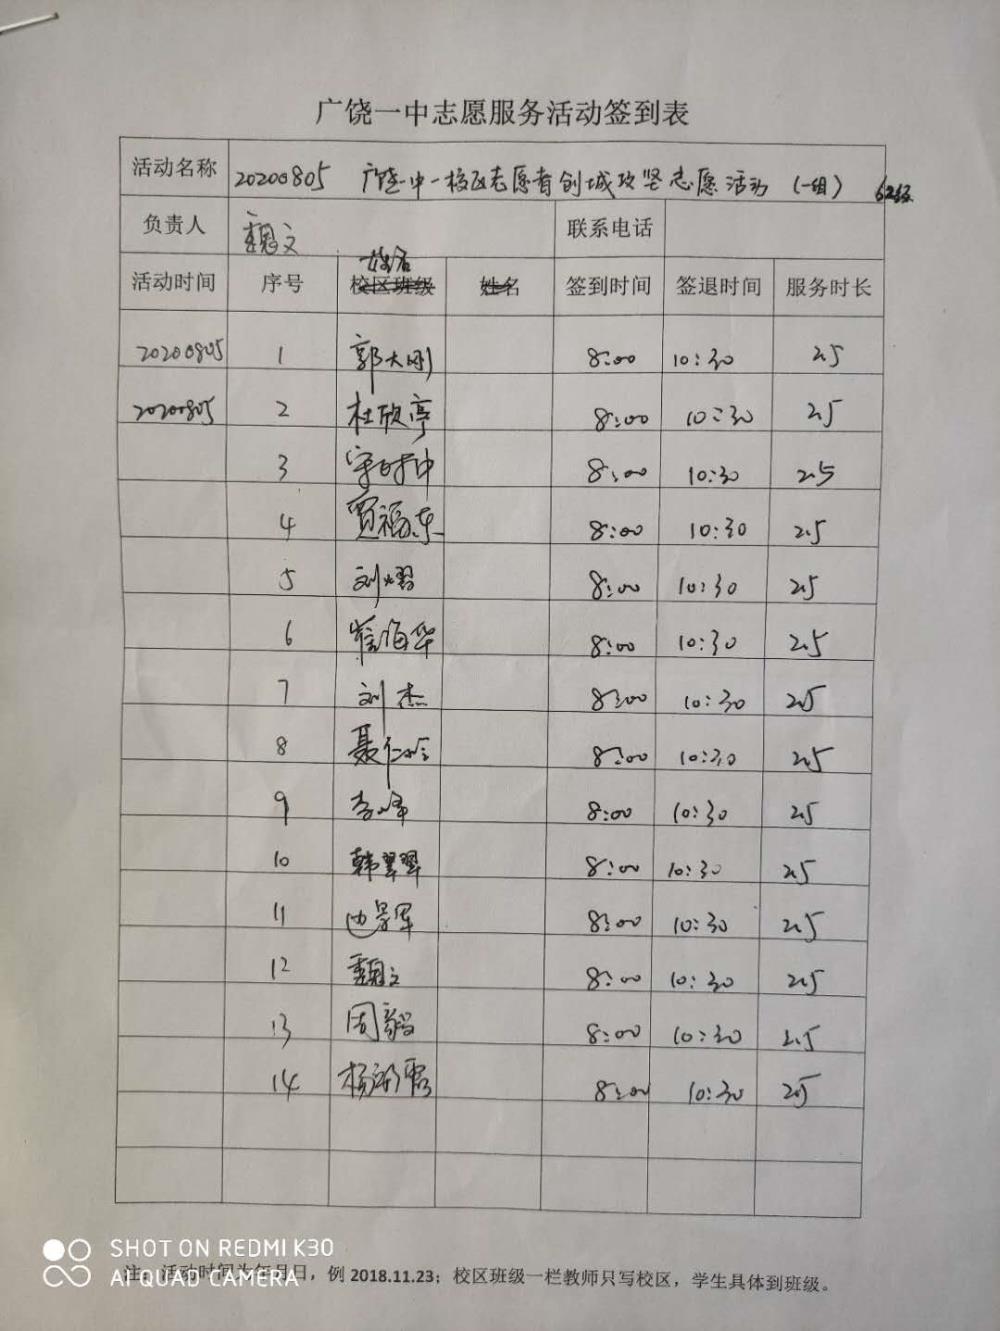 广饶一中志愿服务活动签到表
活动名称 20200805 广饶一中一校区志愿者创城攻坚志愿活动 (一组)
负责人 魏文 联系电话
姓名
活动时间 序号 校区班级 姓名 签到时间 签退时间 服务时长
20200805 1 郭大刚 8:00 10:30 2.5
20200805 2 杜欣亭 8:00 10:30 2.5
3 8:00 10:30 2.5
4 贾福东 8:00 10:30 2.5
5 刘熠 8:00 10:30 2.5
6 崔海华 8:00 10:30 2.5
7 刘杰 8:00 10:30 2.5
8 聂仁 8:00 10:30 2.5
9 李峰 8:00 10:30 2.5
10 韩翠翠 8:00 10:30 2.5
11 边景军 8:00 10:30 2.5
12 魏文 8:00 10:30 2.5
13 周毅 8:00 10:30 2.5
14 杨 8:00 10:30 2.5
SHOT ON REDMI K30
AI QUAD CAMERA
注：活动时间为年月日，例 2018.11.23；校区班级一栏教师只写校区，学生具体到班级。